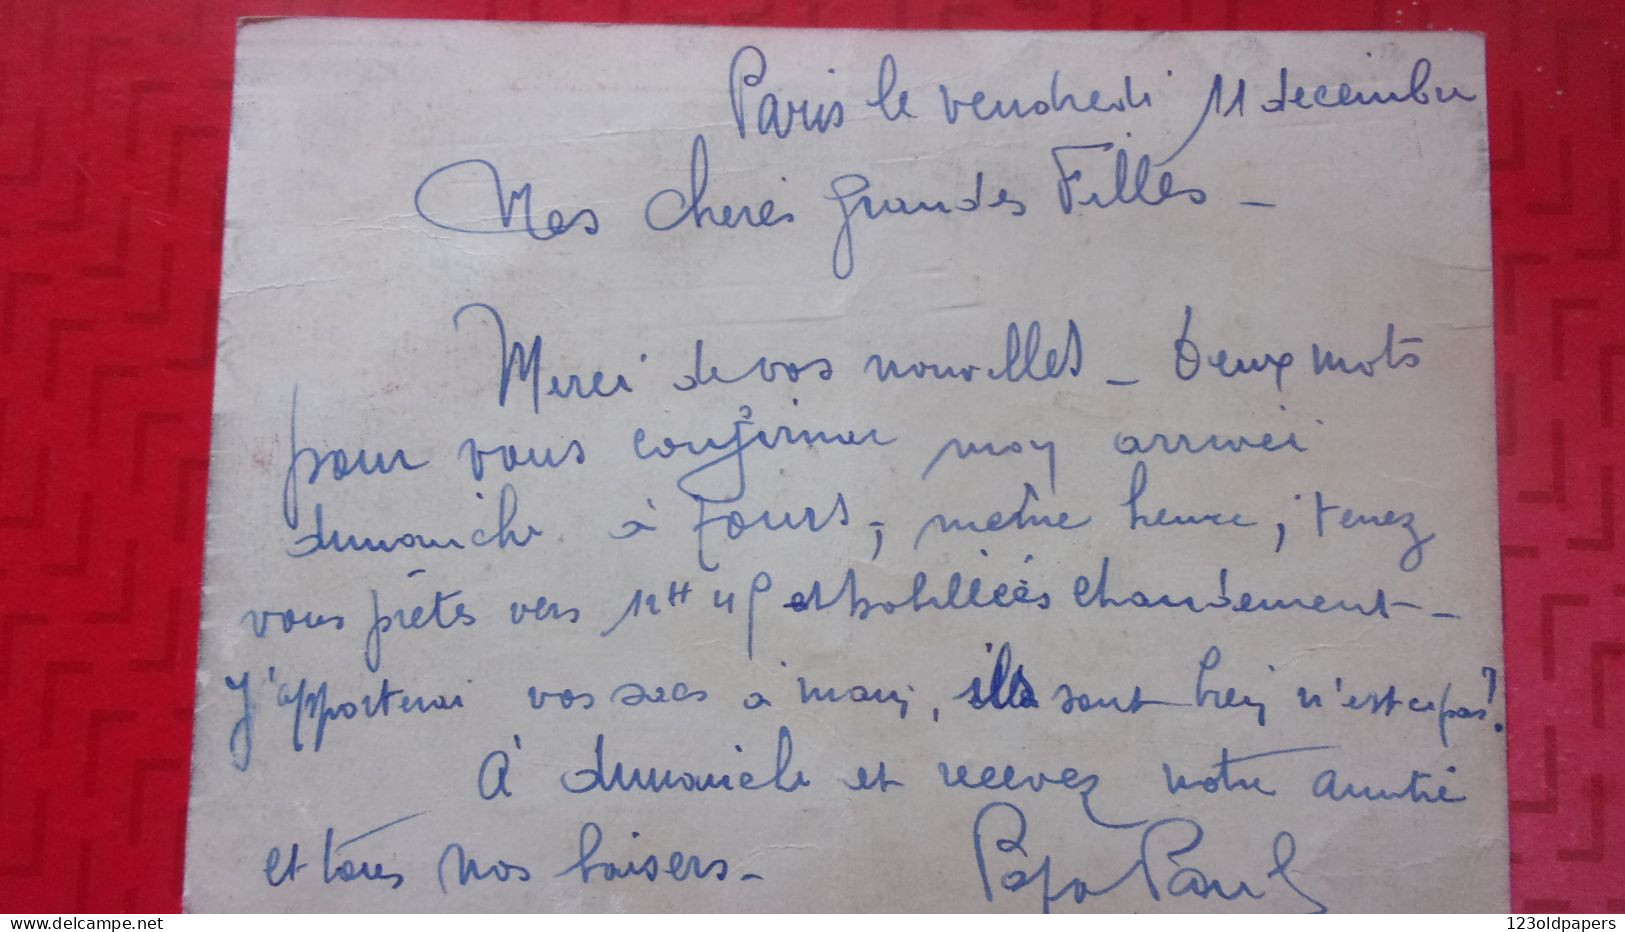 Paris le vendredi 11 decembre
Mes cheres grandes Filles -
Merci de vos nouvelles - Deux mots
pour vous confirmer mon arrivée
dimanche à Tours, même heure, tenez
vous prêtes vers 12H et habillées chaudement -
J'apporterai vos sacs à main, ils sont bien n'est ce pas?
À dimanche et recevez notre amitié
et tous nos baisers -
Papa Paul
123oldpapers